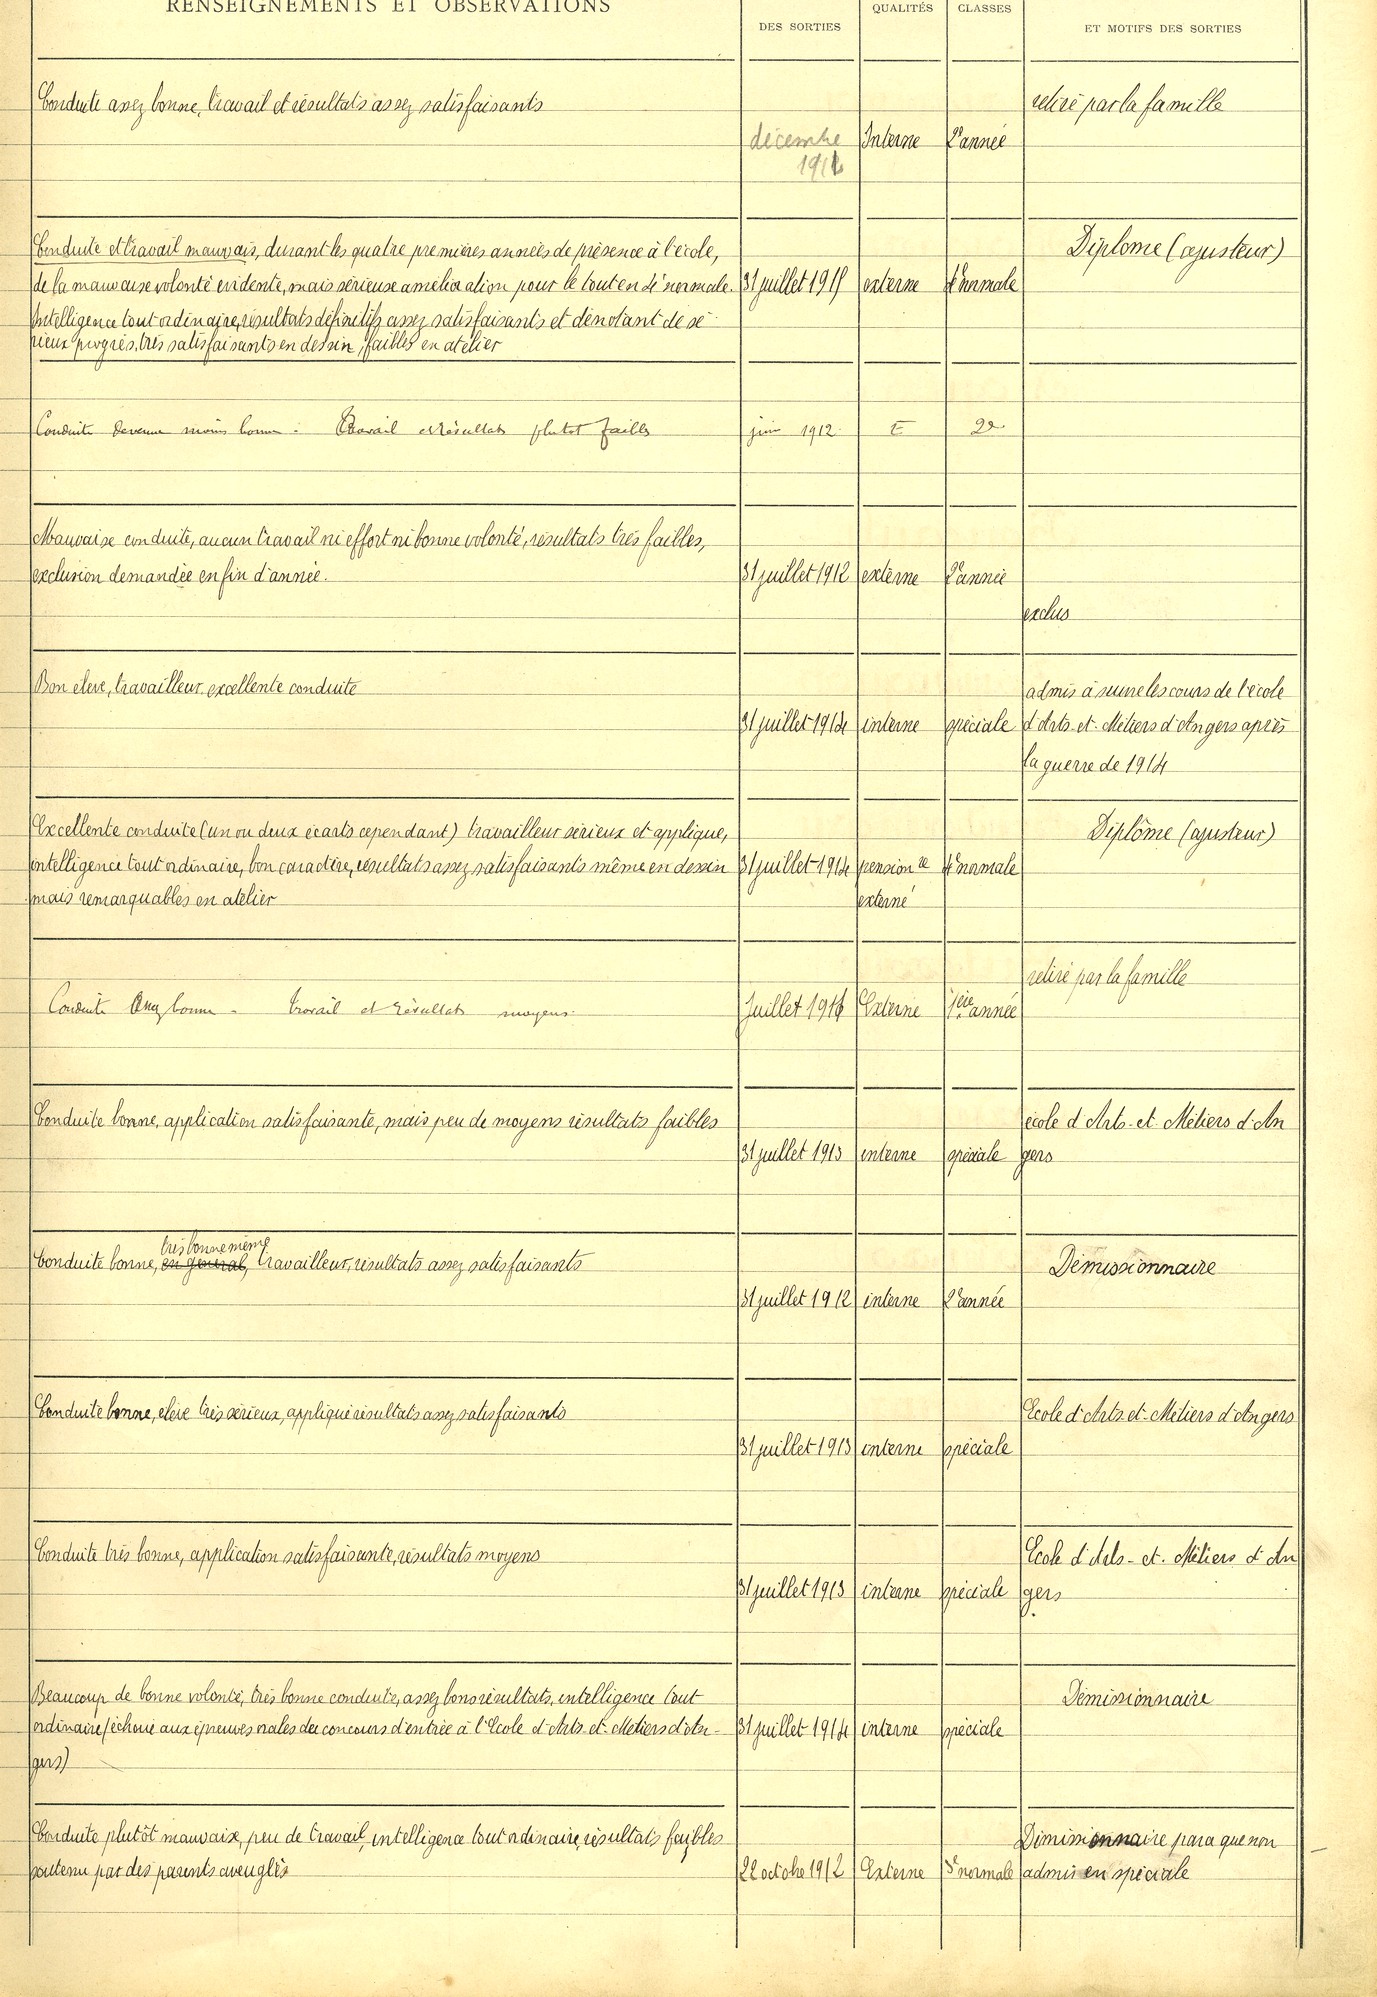 RENSEIGNEMENTS ET OBSERVATIONS
DES SORTIES
QUALITÉS
CLASSES
ET MOTIFS DES SORTIES
Conduite assez bonne, travail et résultats assez satisfaisants
retiré par la famille
décembre Interne 2e année
Conduite et travail mauvais, durant les quatre premières années de présence à l'école,
Diplome (ajusteur)
de la mauvaise volonté évidente, mais sérieuse amélioration pour le tout en 4e normale.
31 juillet 1915 externe 4e normale
Intelligence tout ordinaire, résultats définitifs assez satisfaisants et dénotant de sé-
rieux progrès, très satisfaisants en dessin, faibles en atelier
Conduite devenue moins bonne - Travail et Résultats plutot faibles
juin 1912 E 2e
Mauvaise conduite, aucun travail ni effort ni bonne volonté, résultats très faibles,
exclusion demandée en fin d'année.
31 juillet 1912 externe 2e année
exclus
Bon élève, travailleur, excellente conduite
admis à suivre les cours de l'école
31 juillet 1914 interne spéciale d'Arts-et-Métiers d'Angers après
la guerre de 1914
Excellente conduite (un ou deux écarts cependant) travailleur sérieux et appliqué,
Diplôme (ajusteur)
intelligence tout ordinaire, bon caractère, résultats assez satisfaisants même en dessin
31 juillet 1914 pension re 4e normale
mais remarquables en atelier
externé
retiré par la famille
Conduite Assez bonne - travail et Résultats moyens.
Juillet Externe 1ère année
Conduite bonne, application satisfaisante, mais peu de moyens résultats faibles
école d'Arts-et-Métiers d'An
31 juillet 1913 interne spéciale gers
très bonne même
Conduite bonne, en général, travailleur, résultats assez satisfaisants
Démissionnaire
31 juillet 1912 interne 2e année
Conduite bonne, élève très sérieux, appliqué résultats assez satisfaisants
Ecole d'Arts-et-Métiers d'Angers
31 juillet 1913 interne spéciale
Conduite très bonne, application satisfaisante, résultats moyens
Ecole d'Arts-et-Métiers d'An
31 juillet 1913 interne spéciale gers
Beaucoup de bonne volonté, très bonne conduite, assez bons résultats, intelligence tout
Démissionnaire
ordinaire (échoué aux épreuves orales du concours d'entrée à l'Ecole d'Arts-et-Métiers d'An-
31 juillet 1914 interne spéciale
gers)
Conduite plutôt mauvaise, peu de travail, intelligence tout ordinaire, résultats faibles
Démissionnaire parce que non
soutenu par des parents aveuglés
22 octobre 1912 Externe 3e normale admis en spéciale